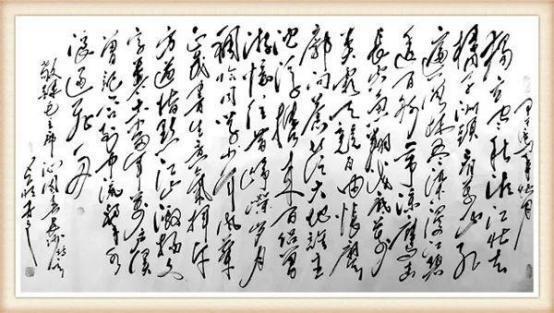 独立寒秋湘江北去
橘子洲头看万山红
遍层林尽染漫江碧
透百舸争流鹰击
长空鱼翔浅底万
类霜天竞自由怅寥
廓问苍茫大地谁主
沉浮携来百侣曾
游忆往昔峥嵘岁月
稠恰同学少年风华
正茂书生意气挥斥
方遒指点江山激扬文
字粪土当年万户侯
曾记否到中流击水
浪遏飞舟
敬录毛主席沁园春长沙